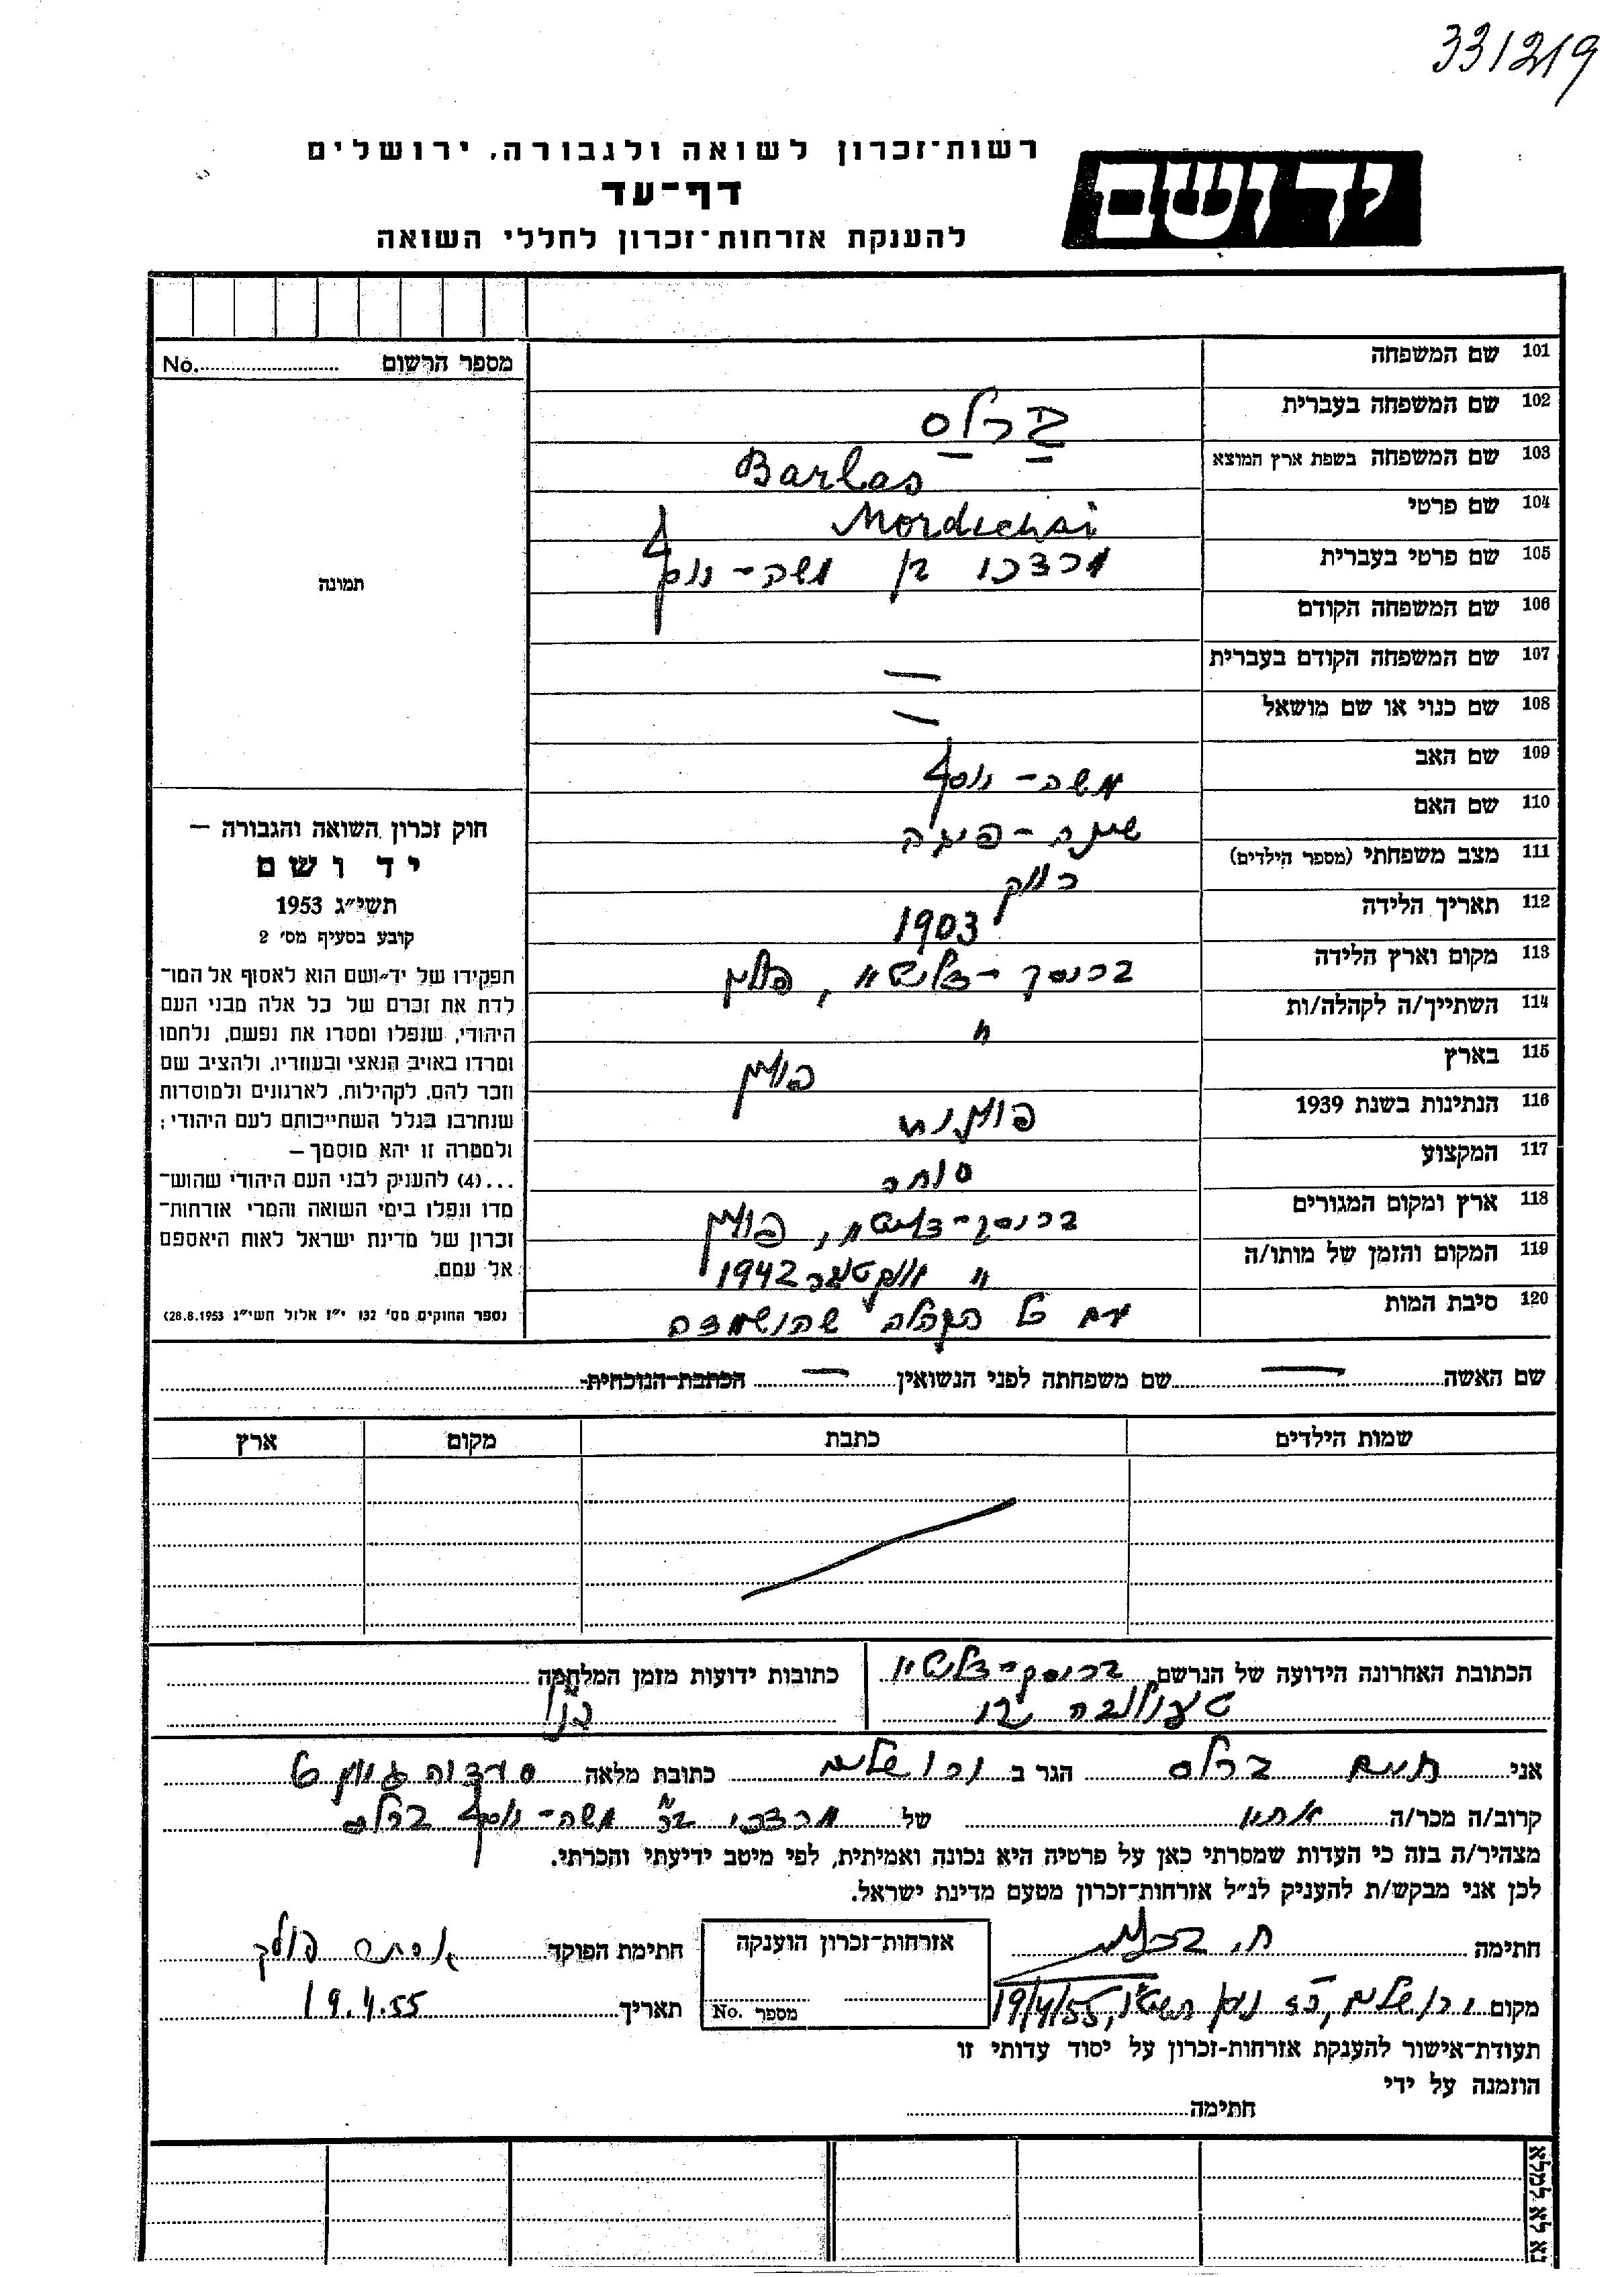 331219
רשות־זכרון לשואה ולגבורה, ירושלים
יד ושם
דף־עד
להענקת אזרחות־זכרון לחללי השואה
מספר הרשום No.
תמונה
חוק זכרון השואה והגבורה —
יד ושם
תשי״ג 1953
קובע בסעיף מס׳ 2
תפקידו של יד־ושם הוא לאסוף אל המו־
לדת את זכרם של כל אלה מבני העם
היהודי, שנפלו ומסרו את נפשם, נלחמו
ומרדו באויב הנאצי ובעוזריו, ולהציב שם
וזכר להם, לקהילות, לארגונים ולמוסדות
שנחרבו בגלל השתייכותם לעם היהודי;
ולמטרה זו יהא מוסמך —
...(4) להעניק לבני העם היהודי שהוש־
מדו ונפלו בימי השואה והמרי אזרחות־
זכרון של מדינת ישראל לאות היאספם
אל עמם.
(ספר החוקים מס׳ 132 י״ז אלול תשי״ג 28.8.1953)
101 שם המשפחה
102 שם המשפחה בעברית ברלס
103 שם המשפחה בשפת ארץ המוצא Barlas
104 שם פרטי Mordechai
105 שם פרטי בעברית מרדכי בן משה-יוסף
106 שם המשפחה הקודם
107 שם המשפחה הקודם בעברית —
108 שם כנוי או שם מושאל —
109 שם האב משה-יוסף
110 שם האם שינה-פיגה
111 מצב משפחתי (מספר הילדים) רווק
112 תאריך הלידה 1903
113 מקום וארץ הלידה בריסק-דליטא, פולין
114 השתייך/ה לקהלה/ות "
115 בארץ פולין
116 הנתינות בשנת 1939 פולנית
117 המקצוע סוחר
118 ארץ ומקום המגורים בריסק-דליטא, פולין
119 המקום והזמן של מותו/ה " אוקטובר 1942
120 סיבת המות עם כל הקהלה שהושמדה
שם האשה — שם משפחתה לפני הנשואין — הכתבת הנוכחית
שמות הילדים כתבת מקום ארץ
הכתובת האחרונה הידועה של הנרשם בריסק-דליטא
כתובות ידועות מזמן המלחמה
כנ״ל
אני חיים ברלס הגר ב ירושלים כתובת מלאה
קרוב/ה מכר/ה אחיו של מרדכי ב״ר משה-יוסף ברלס
מצהיר/ה בזה כי העדות שמסרתי כאן על פרטיה היא נכונה ואמיתית, לפי מיטב ידיעתי והכרתי.
לכן אני מבקש/ת להעניק לנ״ל אזרחות־זכרון מטעם מדינת ישראל.
חתימה ח. ברלס
אזרחות־זכרון הוענקה
מספר No.
חתימת הפוקד אסתר פולק
מקום ירושלים, כ״ז ניסן תשט״ו, 19/4/55
תאריך 19.4.55
תעודת־אישור להענקת אזרחות-זכרון על יסוד עדותי זו
הוזמנה על ידי
חתימה
נא לא למלא